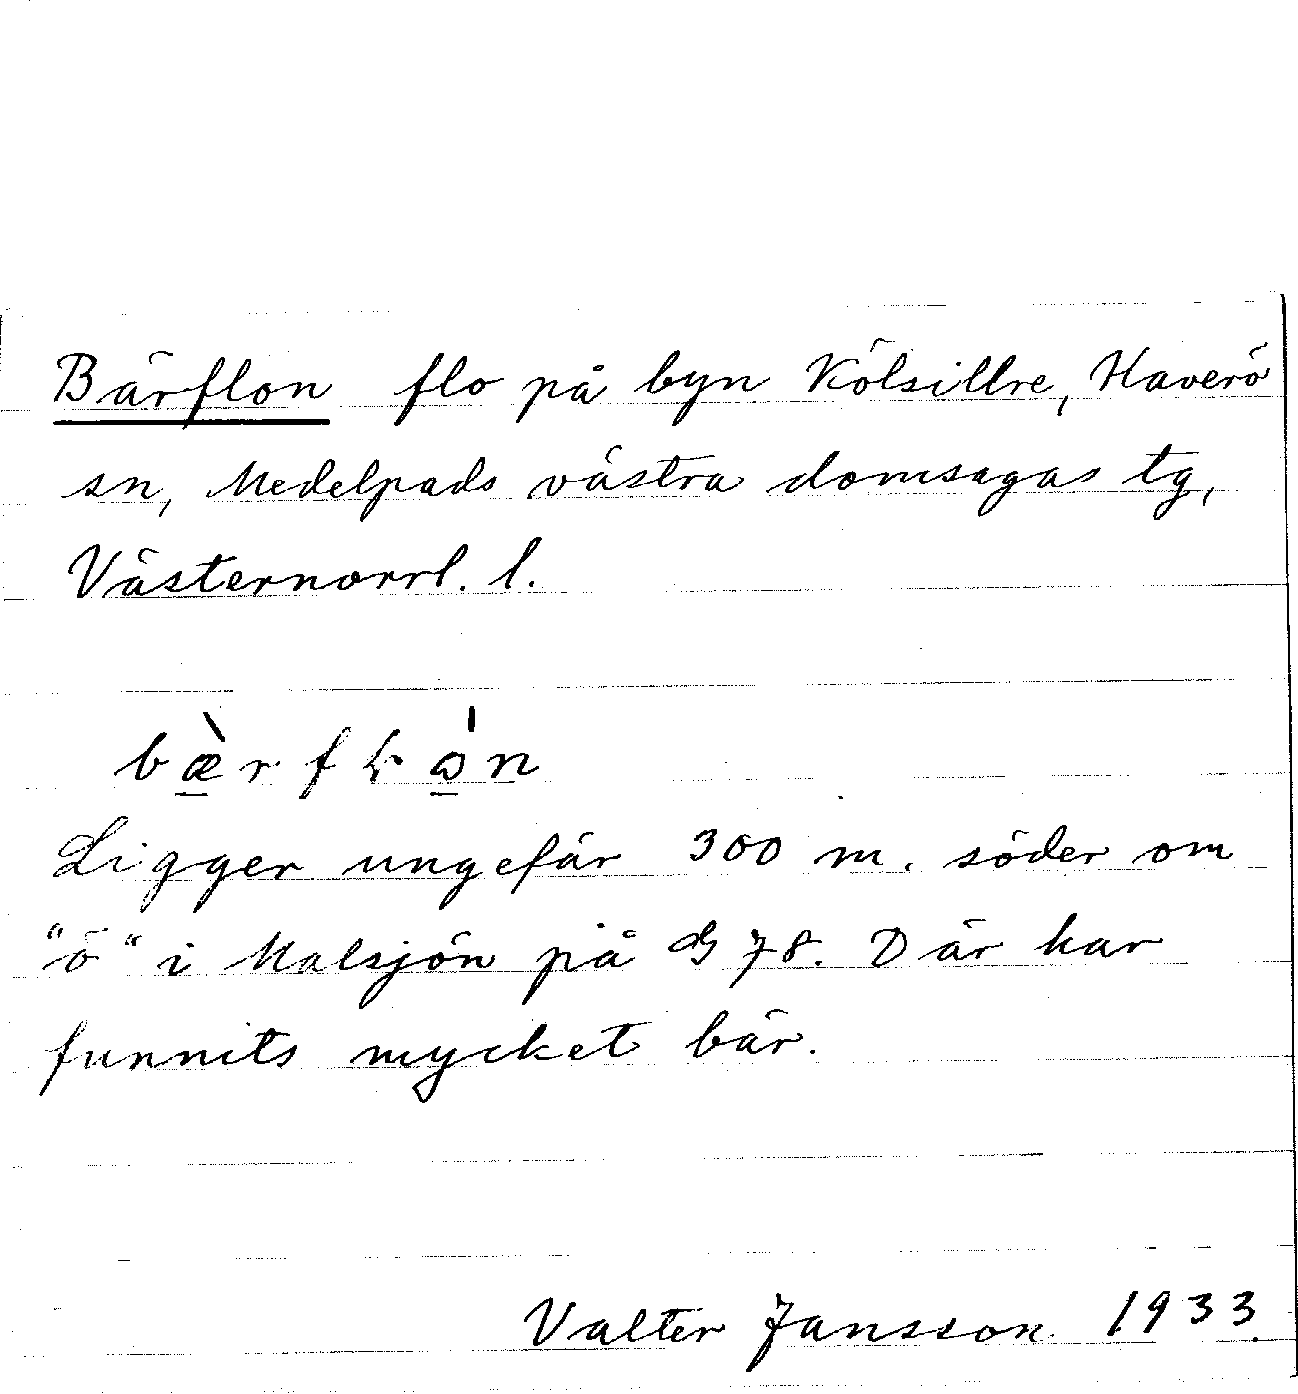 Bärflon flo på byn Kölsillre, Haverö
sn, Medelpads västra domsagas tg,
Västernorrl. l.
Ligger ungefär 300 m. söder om
"ö" i Malsjön på G 78. Där har
funnits mycket bär.
Valter Jansson 1933.